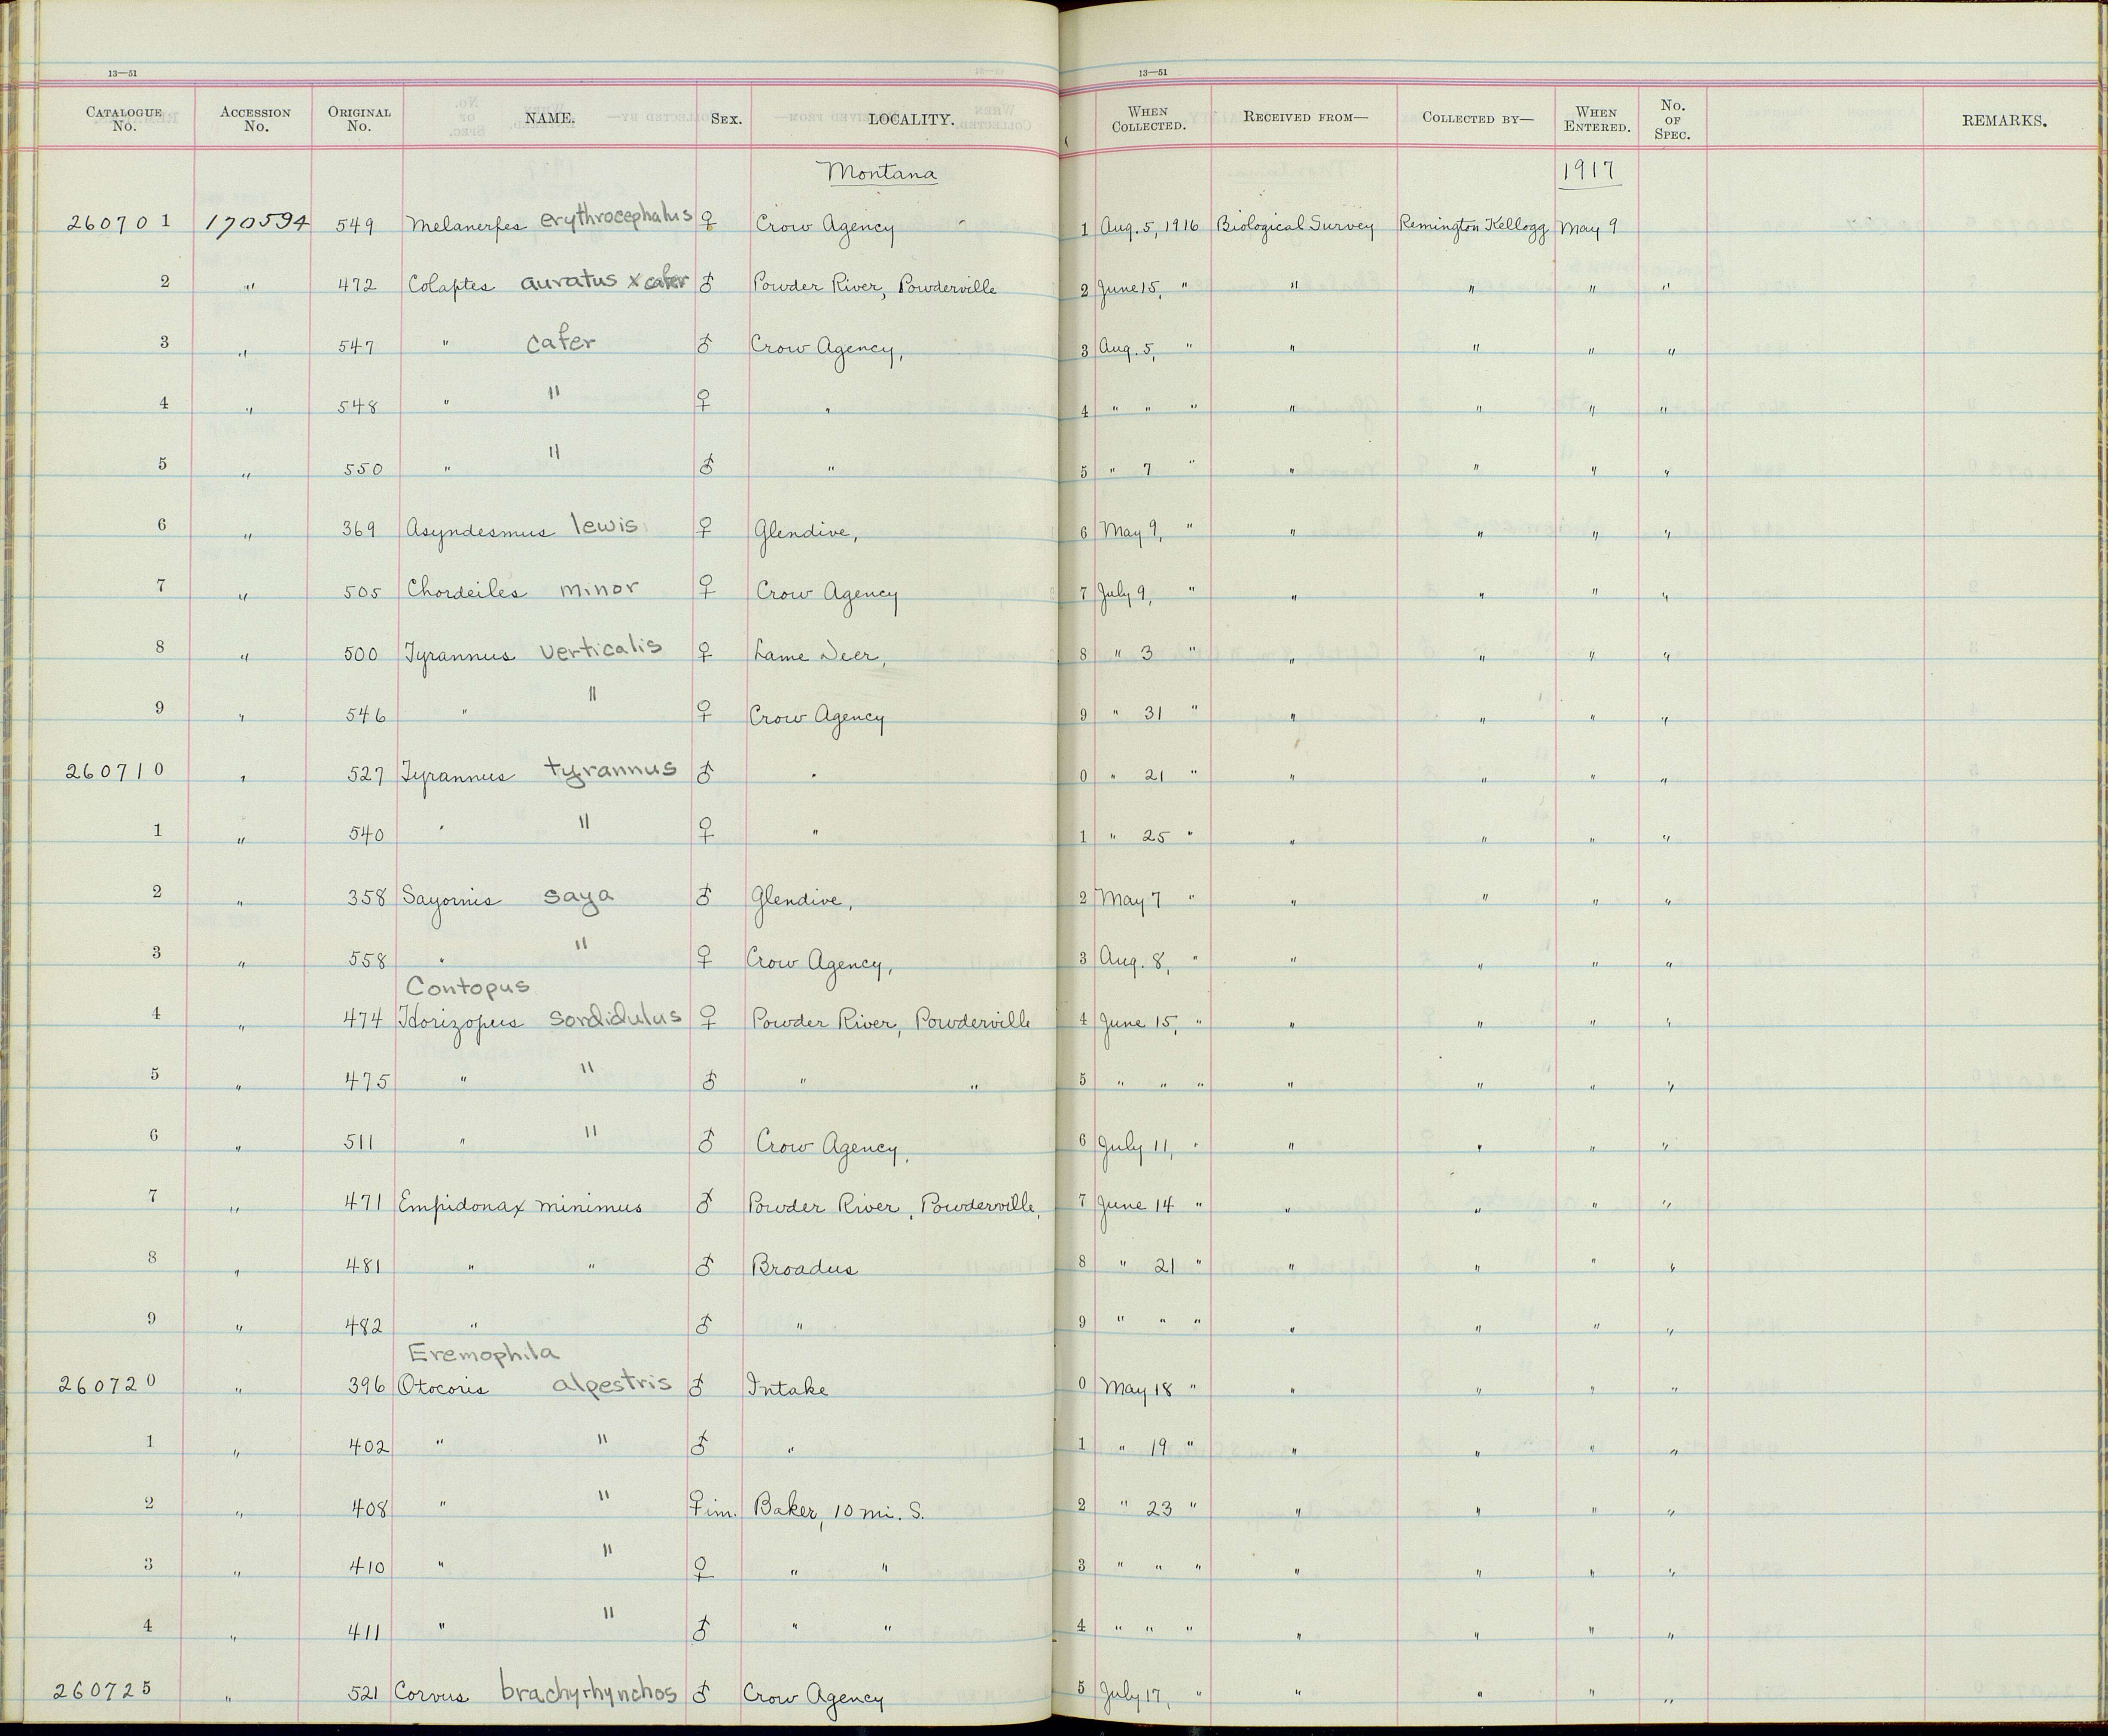 13—51 13—51
CATALOGUE No. ACCESSION No. ORIGINAL No. NAME. SEX. LOCALITY. WHEN COLLECTED. RECEIVED FROM— COLLECTED BY— WHEN ENTERED. No. OF SPEC. REMARKS.
Montana 1917
260701 170594 549 Melanerpes erythrocephalus ♀ Crow Agency 1 Aug. 5, 1916 Biological Survey Remington Kellogg May 9
2 " 472 Colaptes auratus x cafer ♂ Powder River, Powderville 2 June 15, " " " " "
3 " 547 " cafer ♂ Crow Agency, 3 Aug. 5, " " " " "
4 " 548 " " ♀ " 4 " " " " " " "
5 " 550 " " ♂ " 5 " 7 " " " " "
6 " 369 Asyndesmus lewis ♀ Glendive, 6 May 9, " " " " "
7 " 505 Chordeiles minor ♀ Crow Agency 7 July 9, " " " " "
8 " 500 Tyrannus verticalis ♀ Lame Deer, 8 " 3 " " " " "
9 " 546 " " ♀ Crow Agency 9 " 31 " " " " "
260710 " 527 Tyrannus tyrannus ♂ " 0 " 21 " " " " "
1 " 540 " " ♀ " 1 " 25 " " " " "
2 " 358 Sayornis saya ♂ Glendive, 2 May 7 " " " " "
3 " 558 " " ♀ Crow Agency, 3 Aug. 8, " " " " "
Contopus
4 " 474 Horizopus sordidulus ♀ Powder River, Powderville 4 June 15, " " " " "
5 " 475 " " ♂ " " 5 " " " " " " "
6 " 511 " " ♂ Crow Agency, 6 July 11, " " " " "
7 " 471 Empidonax minimus ♂ Powder River, Powderville, 7 June 14 " " " " "
8 " 481 " " ♂ Broadus 8 " 21 " " " " "
9 " 482 " ♂ " 9 " " " " " " "
Eremophila
260720 " 396 Otocoris alpestris ♂ Intake 0 May 18 " " " " "
1 " 402 " " ♂ " 1 " 19 " " " " "
2 " 408 " " ♀ im. Baker, 10 mi. S. 2 " 23 " " " " "
3 " 410 " " ♀ " " 3 " " " " " " "
4 " 411 " " ♂ " " 4 " " " " " " "
260725 " 521 Corvus brachyrhynchos ♂ Crow Agency 5 July 17, " " " " "